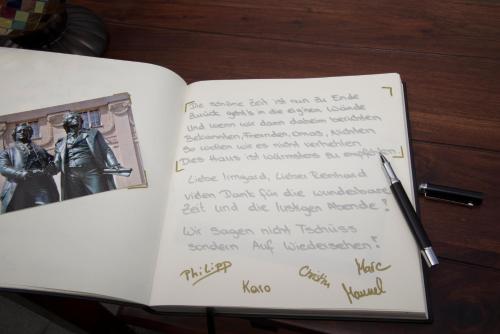 Die schöne Zeit ist nun zu Ende
Zurück geht's in die eig'nen Wände
Und wenn wir dann daheim berichten
Bekannten, Freunden, Omas, Nichten
So wollen wir es nicht verhehlen
Dies Haus ist wärmstens zu empfehlen
Liebe Irmgard, Lieber Reinhard
vielen Dank für die wunderbare
Zeit und die lustigen Abende!
Wir sagen nicht Tschüss
sondern Auf Wiedersehen!
Philipp
Karo
Christin
Marc
Manuel